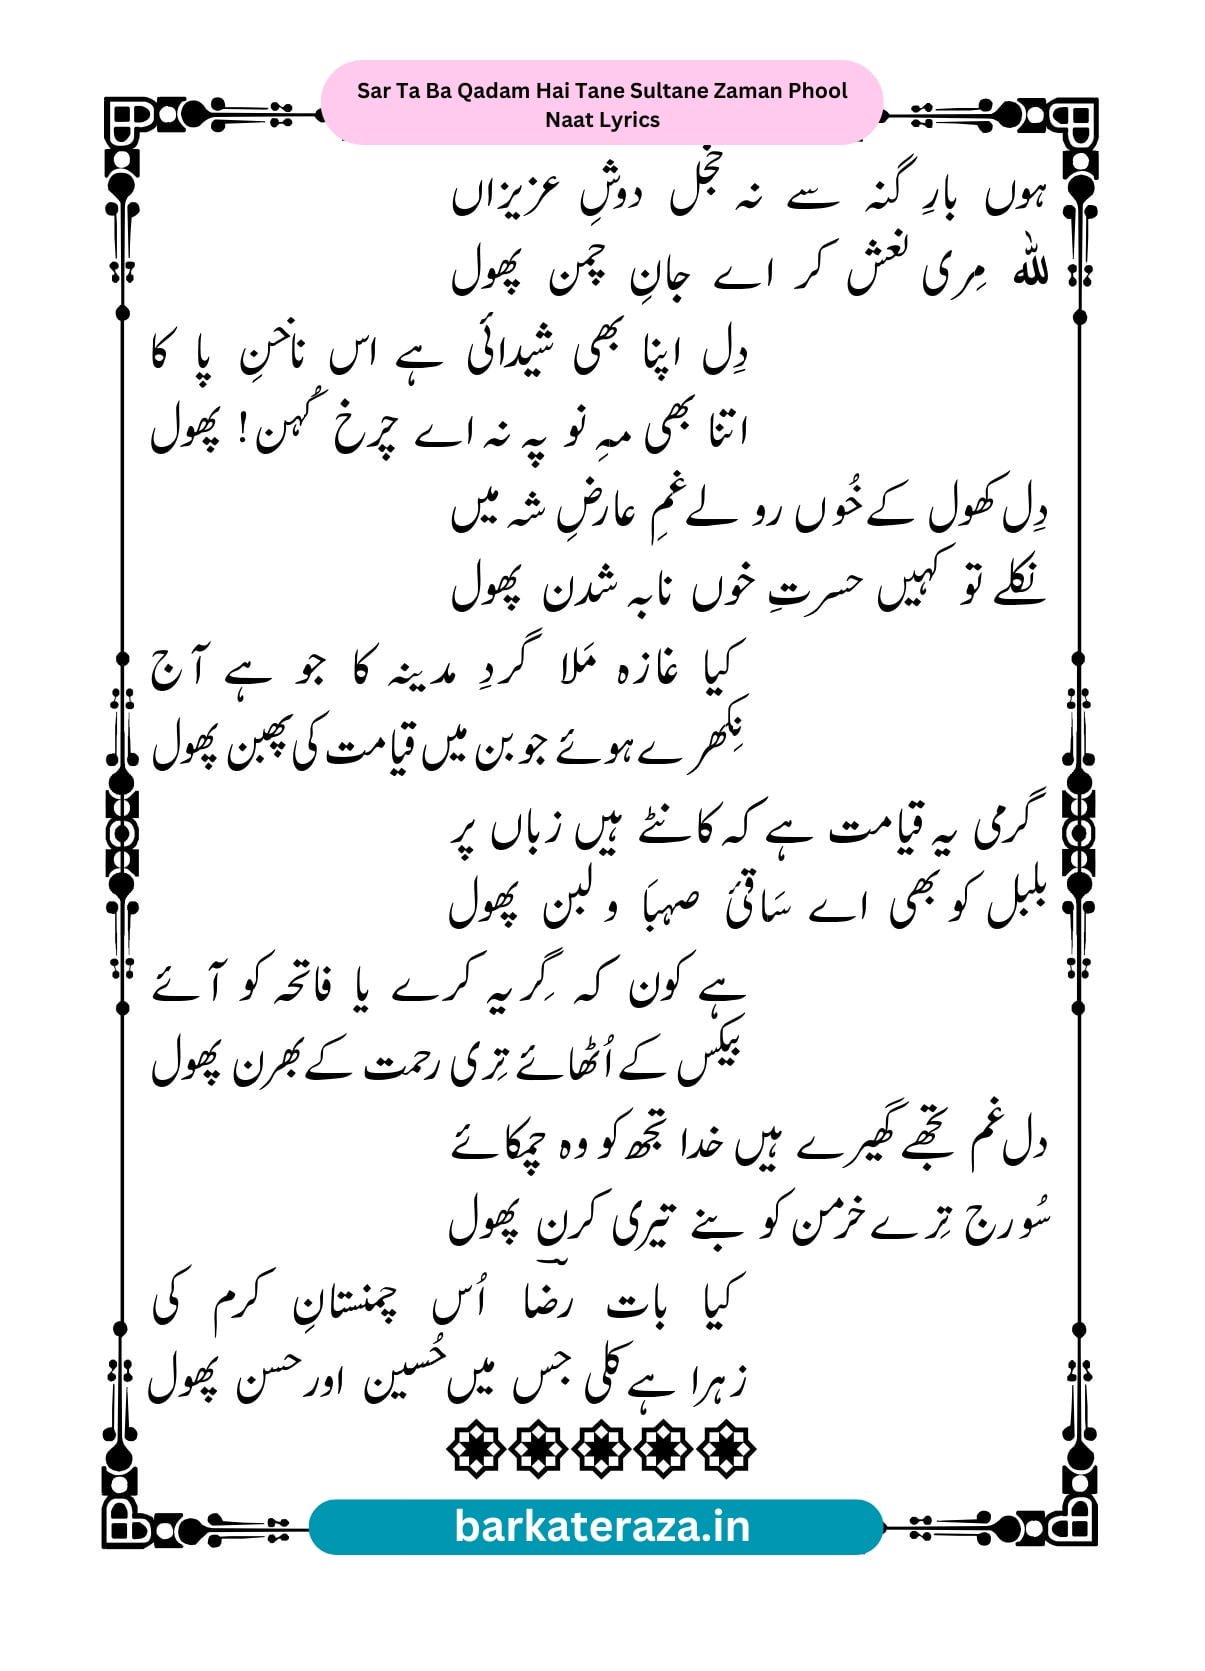 Sar Ta Ba Qadam Hai Tane Sultane Zaman Phool
Naat Lyrics
ہوں بارِ گنہ سے نہ خجل دوشِ عزیزاں
للہ مِری نعش کر اے جانِ چمن پھول
دِل اپنا بھی شیدائی ہے اس ناخنِ پا کا
اتنا بھی مہِ نو پہ نہ اے چرخِ کُہن! پھول
دِل کھول کے خُوں رو لے غمِ عارضِ شہ میں
نکلے تو کہیں حسرتِ خوں نابہ شدن پھول
کیا غازہ مَلا گردِ مدینہ کا جو ہے آج
نِکھرے ہوئے جوبن میں قیامت کی پھبن پھول
گرمی یہ قیامت ہے کہ کانٹے ہیں زباں پر
بلبل کو بھی اے سَاقیٔ صہبَا و لبن پھول
ہے کون کہ گِریہ کرے یا فاتحہ کو آئے
بیکس کے اُٹھائے تِری رحمت کے بھرن پھول
دل غم تجھے گھیرے ہیں خدا تجھ کو وہ چمکائے
سُورج تِرے خرمن کو بنے تیری کرن پھول
کیا بات رضؔا اُس چمنستانِ کرم کی
زہرا ہے کلی جس میں حُسین اور حسن پھول
barkateraza.in